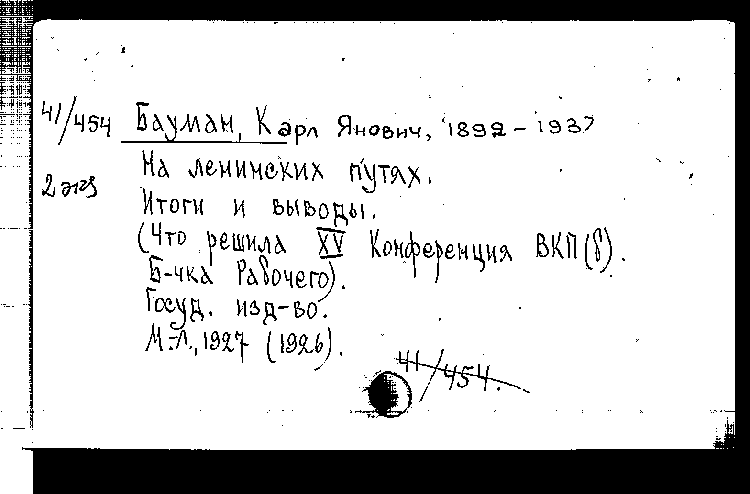 41/454 Бауман, Карл Янович, 1892-1937
На ленинских путях.
2 экз
Итоги и выводы.
(Что решила XV Конференция ВКП(б).
Б-чка Рабочего).
Госуд. изд-во.
М.-Л., 1927 (1926).
41/454.